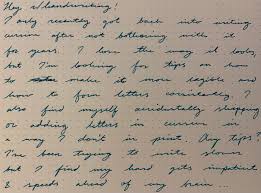 Hey, r/handwriting!
I only recently got back into writing
cursive after not bothering with it
for years. I love the way it looks,
but I'm looking for tips on how
to make it more legible and
how to form letters consistently. I
also find myself accidentally skipping
or adding letters in cursive in
a way I don't in print. Any tips?
I've been trying to write slower
but I find my hand gets impatient
& speeds ahead of my brain...